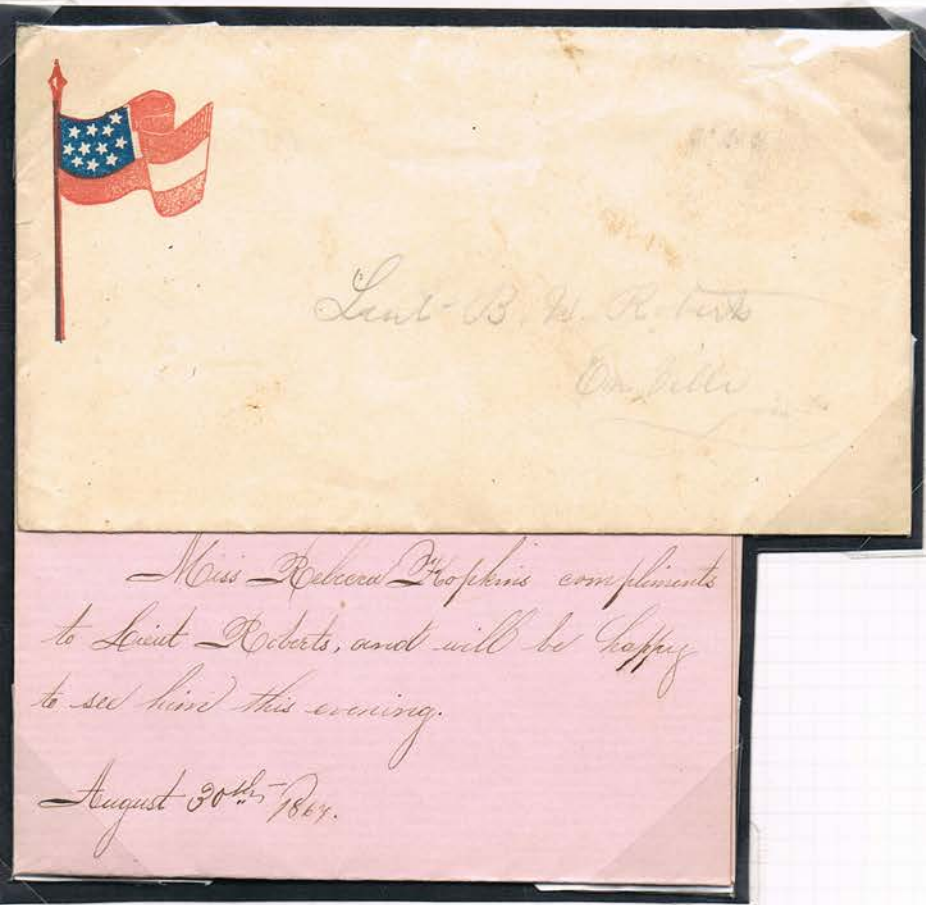 Lieut B. W. Roberts
Miss Rebecca Hopkins compliments
to Lieut Roberts, and will be happy
to see him this evening.
August 30th 1864.